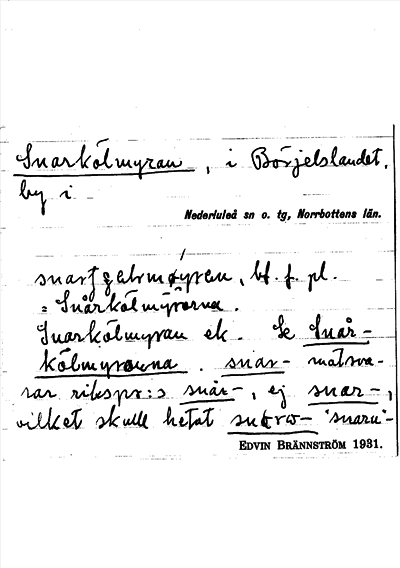 Snarkölmyran, i Börjelslandet,
by i
Nederluleå sn o. tg, Norrbottens län.
bf. f. pl.
= Snårkölmyrorna.
Snarkölmyran ek. Se Snår-
kölmyrorna. snar- motsva-
rar rikspr:s snår-, ej snar-,
vilket skulle hetat "snaru"-
EDVIN BRÄNNSTRÖM 1931.